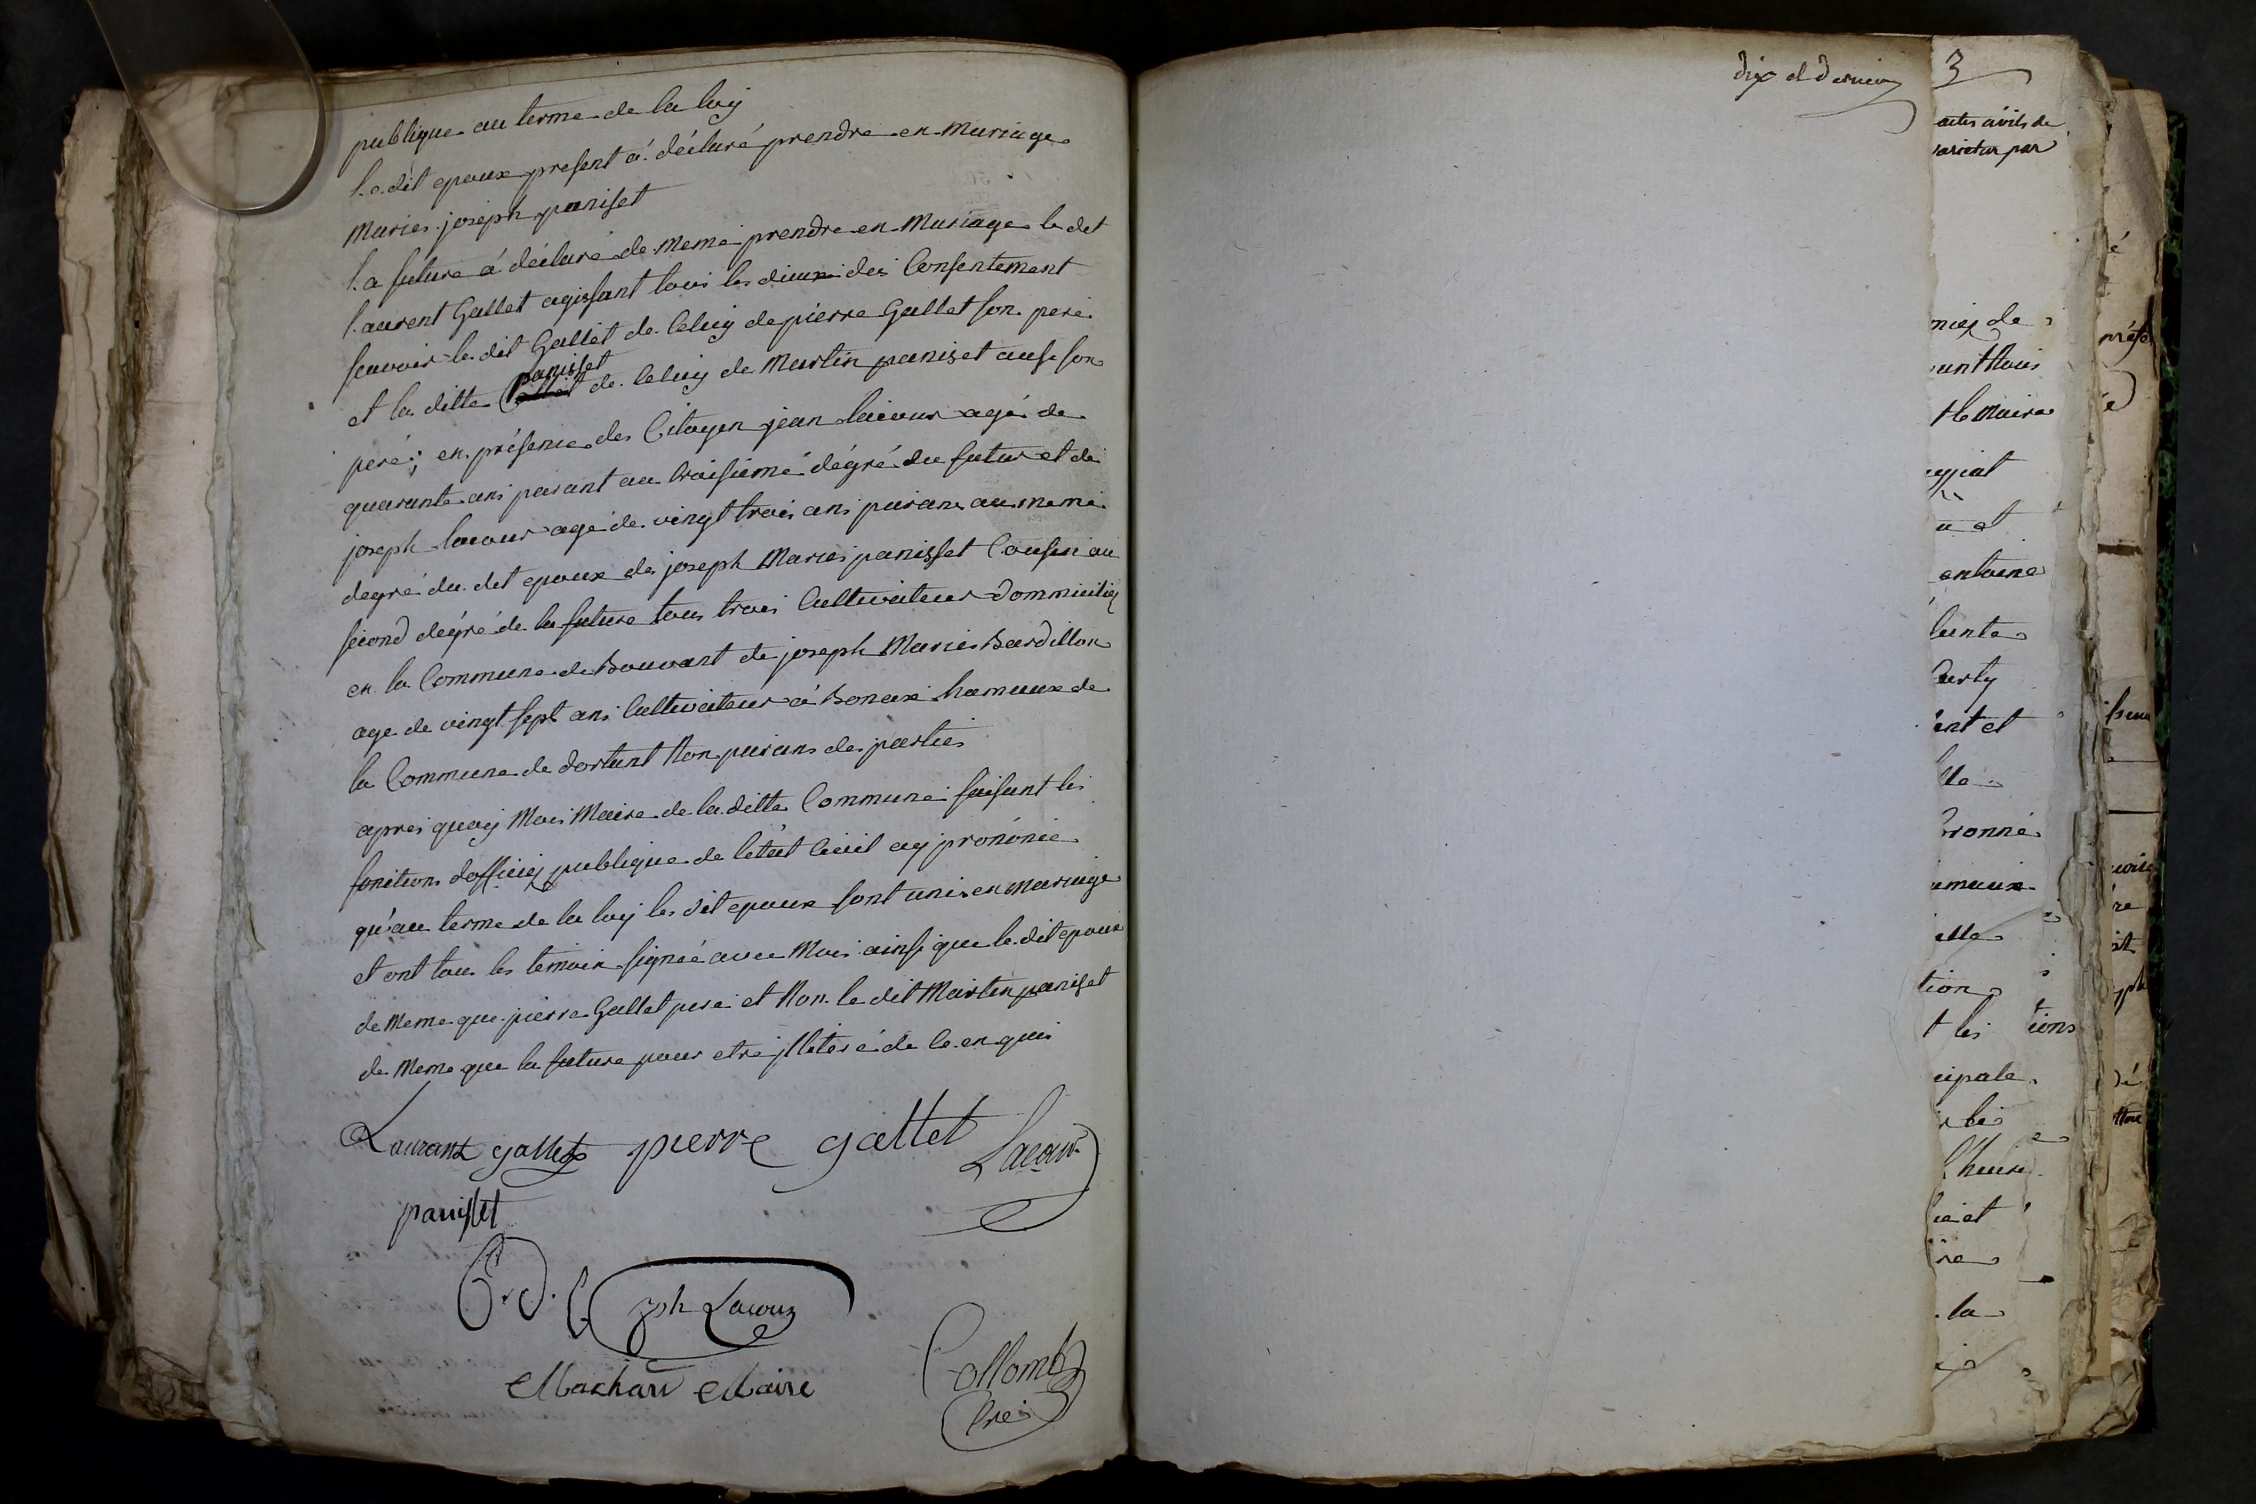 publique au terme de la loy
le dit epoux present á déclaré prendre en mariage
marie joseph paniset
la future á déclaré de meme prendre en mariage le dit
laurent Gallet agissant tous les deux du Consentement
scavoir le dit Gallet de celuy de pierre Gallet son pere
panisset
et la ditte de celuy de Martin paniset ausi son
peré; en présence de Citoyen jean lacour agé de
quarante ans parant au troisieme dégré du futur et de
joseph lacour agé de vingt trois ans parans au meme
degré du dit epoux de joseph Marie panisset Cousin au
second dégré de la future tous trois Cultivateur dommicilié
en la Commune de Bouvant de joseph Marie Bardillon
age de vingt sept ans Cultivateur á Bonaxe hamaux de
la Commune de dortant Non parans des parties
apres quoy Moi Maire de la ditte Commune faisant les
fonctions d'officier publique de l'état Civil ay prononcé
qu'au terme de la loy les dit epoux sont unis en mariage
et ont tous les temoin signéé avec Moi ainsi que le dit epoux
de Meme que pierre Gallet peré et Non le dit Martin paniset
de Meme que la future pour etre jlliteré de ce enquis
Laurant gallet pierre gallet Lacour
panisset
B. D. jph Lacour
Machard Maire
Collomb
Cre
dix et dernier
3
actes civils de
varietur par
nier de
t le Maire
u et
antoine
ent et
amaux
ette
tion
t les
tions
cipale
l'heure
ie et
re
la